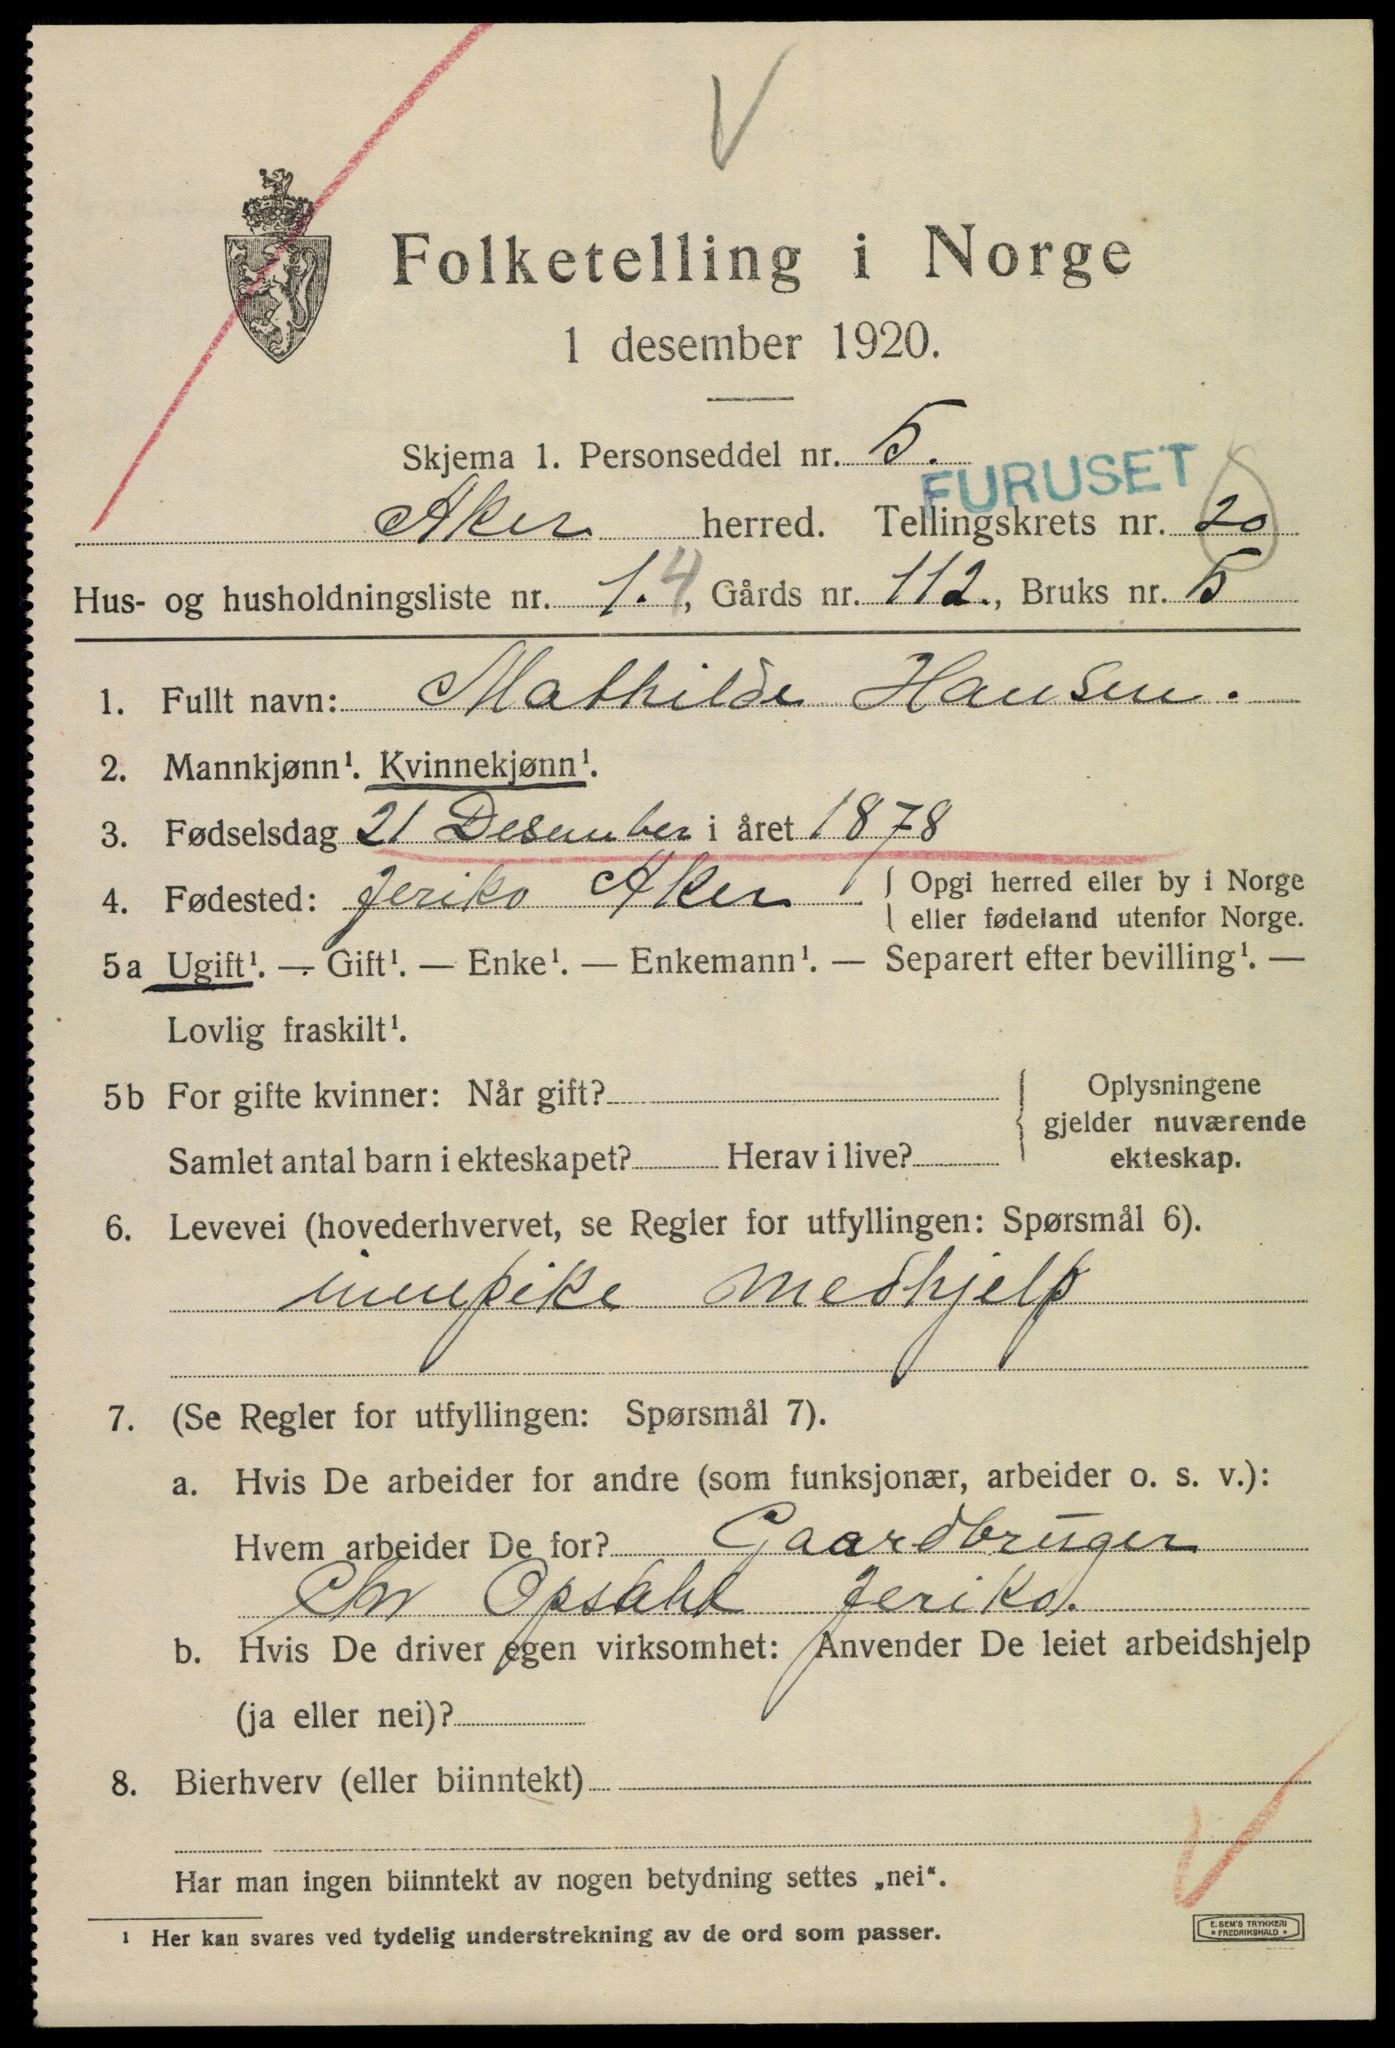 Folketelling i Norge
1 desember 1920.
Skjema 1. Personseddel nr. 5.
FURUSET
Aker herred. Tellingskrets nr. 20
Hus- og husholdningsliste nr. 1. 4, Gårds nr. 112., Bruks nr. 5
1. Fullt navn: Mathilde Hansen.
2. Mannkjønn¹. Kvinnekjønn¹.
3. Fødselsdag 21 Desember i året 1878
4. Fødested: Jeriko Aker { Opgi herred eller by i Norge
eller fødeland utenfor Norge.
5a Ugift¹. — Gift¹. — Enke¹. — Enkemann¹. — Separert efter bevilling¹. —
Lovlig fraskilt¹.
5b For gifte kvinner: Når gift?
Samlet antal barn i ekteskapet? Herav i live?
Oplysningene
gjelder nuværende
ekteskap.
6. Levevei (hovederhvervet, se Regler for utfyllingen: Spørsmål 6).
innepike medhjelp
7. (Se Regler for utfyllingen: Spørsmål 7).
a. Hvis De arbeider for andre (som funksjonær, arbeider o. s. v.):
Hvem arbeider De for? Gaardbruger
Chr Opsahl Jeriko.
b. Hvis De driver egen virksomhet: Anvender De leiet arbeidshjelp
(ja eller nei)?
8. Bierhverv (eller biinntekt)
Har man ingen biinntekt av nogen betydning settes „nei“.
¹ Her kan svares ved tydelig understrekning av de ord som passer.
E. SEM'S TRYKKERI
* FREDRIKSHALD *